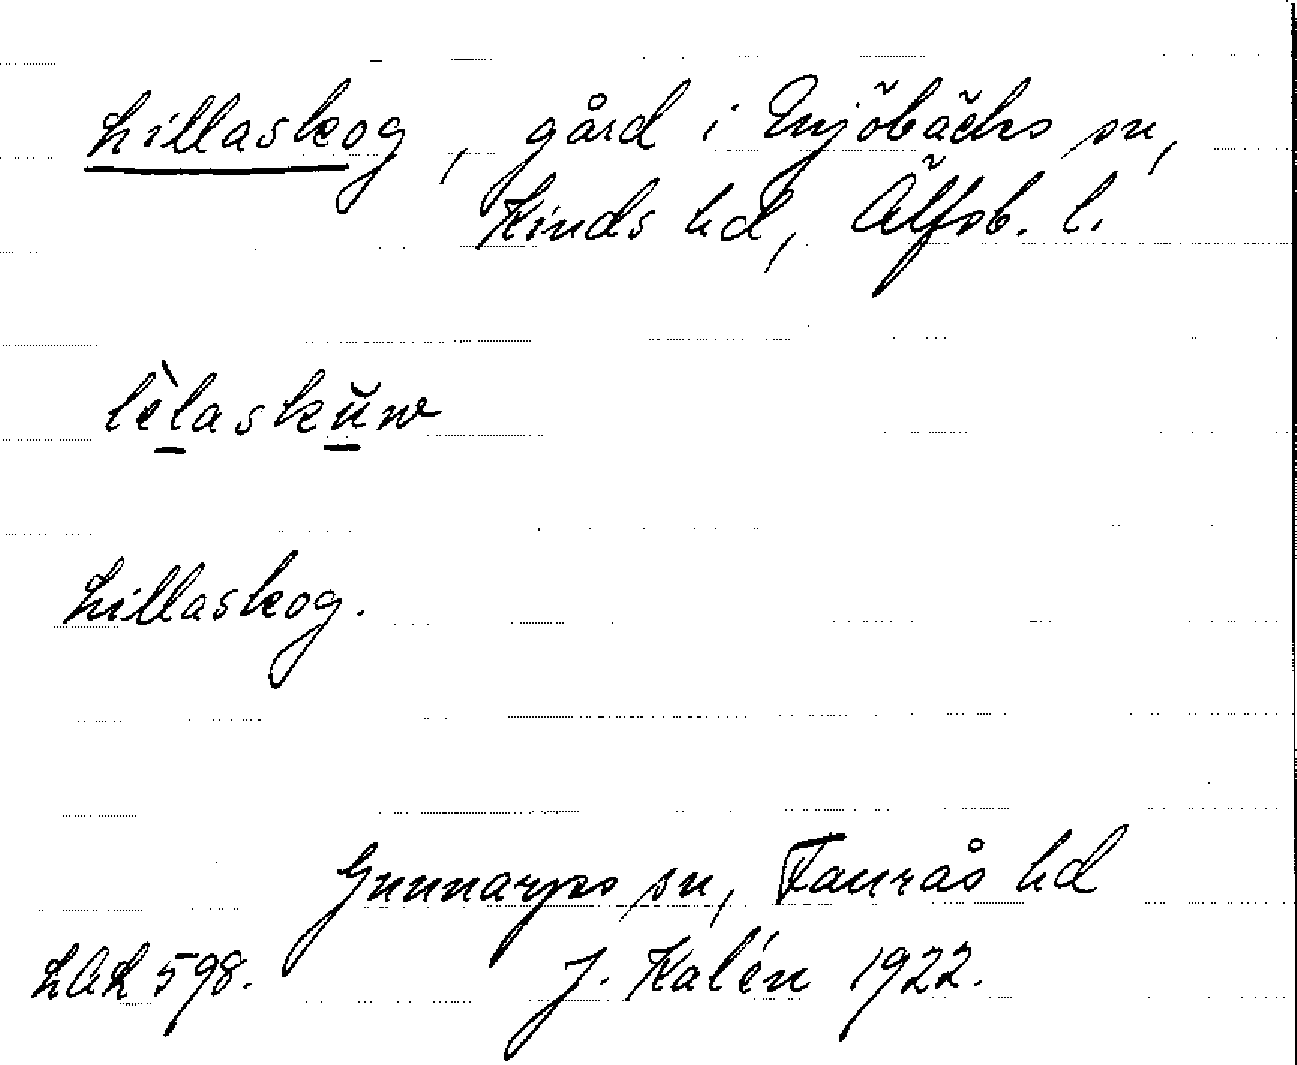 Lillaskog, gård i Enjöbäcks sn,
Kinds hd, Älfsb. l.
lèlaskŭw
Lillaskog.
Gunnarps sn, Faurås hd
LAL 598. J. Kalén 1922.